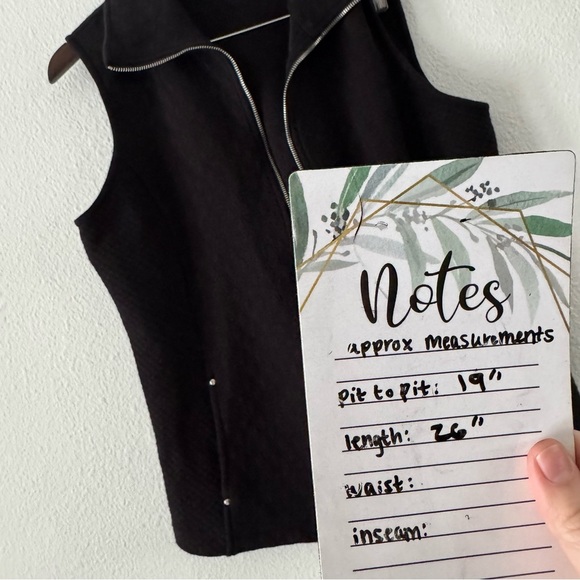 Notes
approx measurements
pit to pit: 19"
length: 26"
waist:
inseam: